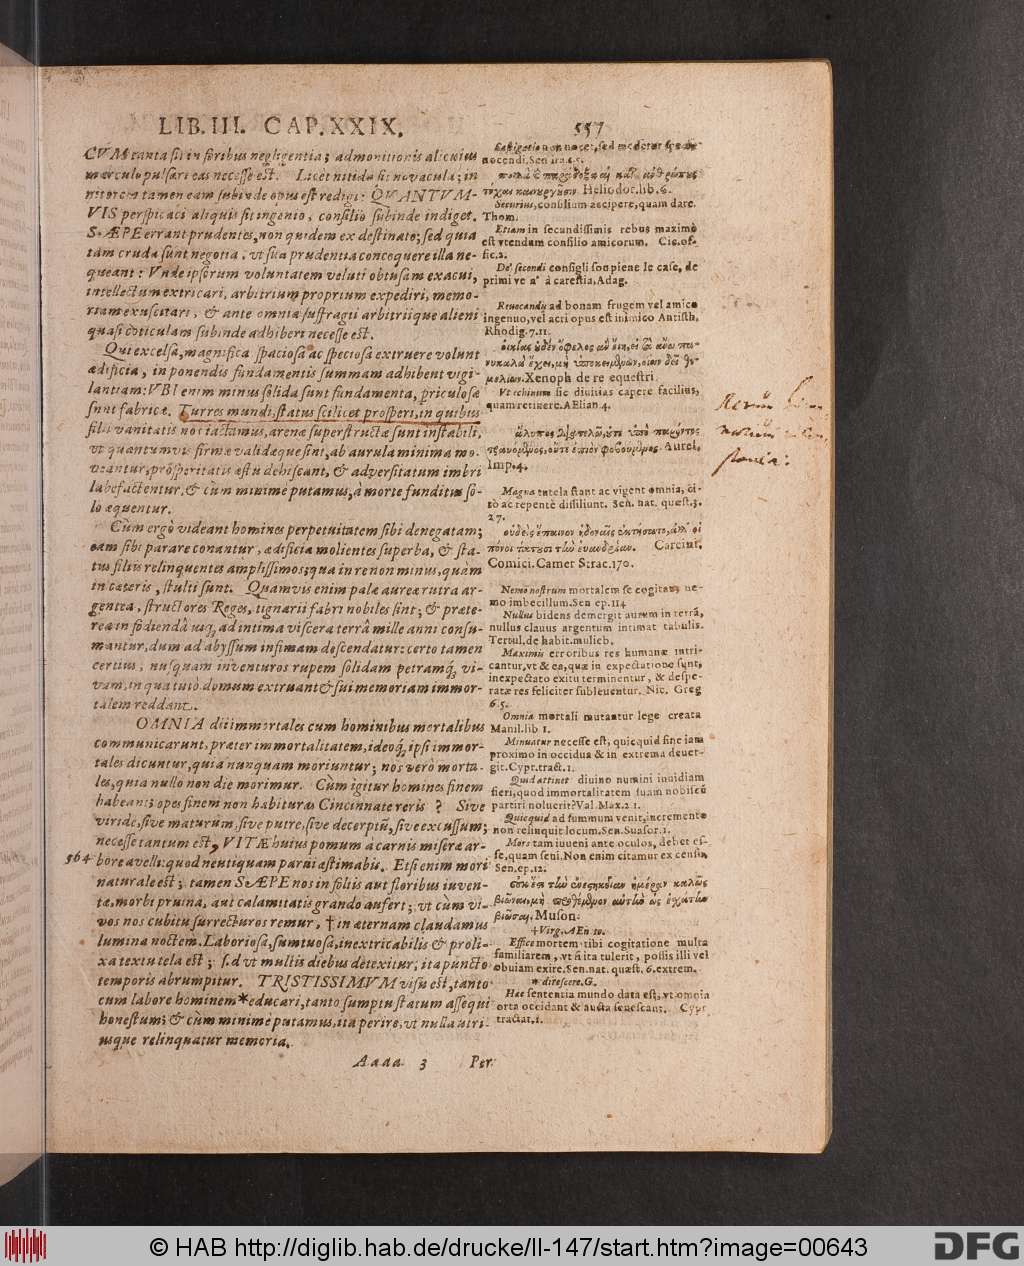 LIB. III. CAP. XXIX.
557
CVM tanta sit in foribus negligentia; admonitionis alicuius
merculo pulsari eas necesse est. Licet nitida sit novacula; in
tamen eam subinde opus est redigi: QVANTVM-
VIS perspicaci aliquis sit ingenio, consilio subinde indiget.
SÆPE errant prudentes, non quidem ex destinato; sed quia
tam cruda sunt negotia, vt sua prudentia concoquere illa ne-
queant: Vnde ipsorum voluntatem veluti obtusam exacui,
intellectum extricari, arbitrium proprium expediri, memo-
riam exuscitari, & ante omnia suffragii arbitriique alieni
quasi coticulam subinde adhiberi necesse est.
Qui excelsa, magnifica spaciosa ac speciosa extruere volunt
ædificia, in ponendis fundamentis summam adhibent vigi-
lantiam: VBI enim minus solida sunt fundamenta, periculosæ
sunt fabricæ. Turres mundi, status scilicet prosperi, in quibus
filii vanitatis nos iactamus, arenæ superstructæ sunt instabili,
vt quantumvis firmæ validæque sint, ab aurula minima mo-
veantur, prosperitatis æstu dehiscant, & adversitatum imbri
labefactentur, & cùm minimè putamus, à morte funditus so-
lo æquentur.
Cùm ergò videant homines perpetuitatem sibi denegatam;
eam sibi parare conantur, ædificia molientes superba, & sta-
tus filiis relinquentes amplissimos; qua in re non minus, quàm
in cæteris, stulti sunt. Quamvis enim palæ aureæ rutra ar-
gentea, structores Reges, tignarii fabri nobiles sint; & præte-
rea in fodiendâ iisq, ad intima viscera terrâ mille anni consu-
mantur, dum ad abyssum infimam descendatur: certo tamen
certius, nusquam inventuros rupem solidam petramq́, vi-
vam, in qua tutò domum extruant & sui memoriam immor-
talem reddant.
OMNIA dii immortales cum hominibus mortalibus
communicarunt, præter immortalitatem, ideoq́, ipsi immor-
tales dicuntur, quia nunquam moriuntur; nos verò morta-
les, quia nullo non die morimur. Cùm igitur homines finem
habeant; opes finem non habituras Cincinnate reris? Sive
viride, sive maturum, sive putre, sive decerptū, sive excussum;
necesse tantum est, VITÆ huius pomum à carnis miseræ ar-
564
bore avelli: quod neutiquam parui æstimabis. Etsi enim mori
naturale est; tamen SÆPE nos in foliis aut floribus inven-
tæ, morbi pruina, aut calamitatis grando aufert; vt cum vi-
vos nos cubitu surrecturos remur, † in æternam claudamus
lumina noctem. Laboriosa, sumtuosa, inextricabilis & proli-
xa textu tela est; sed vt multis diebus detexitur, ita puncto
temporis abrumpitur. TRISTISSIMVM visu est, tanto
cum labore hominem * educari, tanto sumptu statum assequi
honestum; & cùm minimè putamus, ita perire, vt nulla utri-
usque relinquatur memoria.
Aaaa 3
Per-
non nocet, sed
nocendi. Sen ira
Heliodor. lib. 6.
Securius, consilium accipere, quam dare.
Thom.
Etiam in secundissimis rebus maximò
est vtendum consilio amicorum. Cic. of-
fic. 2.
De' secondi consigli son piene le case, de
primi ve n' à carestia, Adag.
Reuocandis ad bonam frugem vel amico
ingenuo, vel acri opus est inimico Antisth.
Rhodig. 7. 11.
οἰκίας οὐδὲν ὄφελος
Xenoph de re equestri.
Vt echinum sic diuitias capere facilius,
quam retinere. AElian. 4.
Aurel.
Imp. 4.
Magna tutela stant ac vigent omnia, ci-
tò ac repentè dissiliunt. Sen. nat. quæst. 3.
27.
οὐδεὶς ἔπαινον ἡδοναῖς ἐκτήσατο, ἀλλ' οἱ
πόνοι τίκτουσι τὴν εὐανδρίαν. Carcini.
Comici. Camer Strac. 170.
Nemo nostrum mortalem se cogitat, ne-
mo imbecillum. Sen ep. 114
Nullus bidens demergit aurum in terrâ,
nullus clauus argentum intimat tabulis.
Tertul. de habit. mulieb.
Maximis erroribus res humanæ intri-
cantur, vt & ea, quæ in expectatione sunt,
inexpectato exitu terminentur, & despe-
ratæ res feliciter subleuentur. Nic. Greg
6. 5.
Omnia mortali mutantur lege creata
Manil. lib 1.
Minuatur necesse est, quicquid fine iam
proximo in occidua & in extrema deuer-
git. Cypr. tract. 1.
Quid attinet diuino numini inuidiam
fieri, quod immortalitatem suam nobiscū
partiri noluerit? Val. Max. 2 1.
Quicquid ad summum venit, incremento
non relinquit locum. Sen. Suasor. 1.
Mors tam iuueni ante oculos, debet es-
se, quam seni. Non enim citamur ex censu,
Sen. ep. 12.
οὐκ ἔστι τὴν ἐνεστηκυῖαν ἡμέραν καλῶς
βιῶναι, μὴ προθέμενον αὐτὴν ὡς ἐσχάτην
βιῶσαι, Muson:
† Virg. AEn 10.
Effice mortem tibi cogitatione multa
familiarem, vt si ita tulerit, possis illi vel
obuiam exire. Sen. nat. quæst. 6. extrem.
* ditescere. G.
Hæc sententia mundo data est, vt omnia
orta occidant & aucta senescant. Cypr
tractat. 1.
© HAB http://diglib.hab.de/drucke/ll-147/start.htm?image=00643
DFG